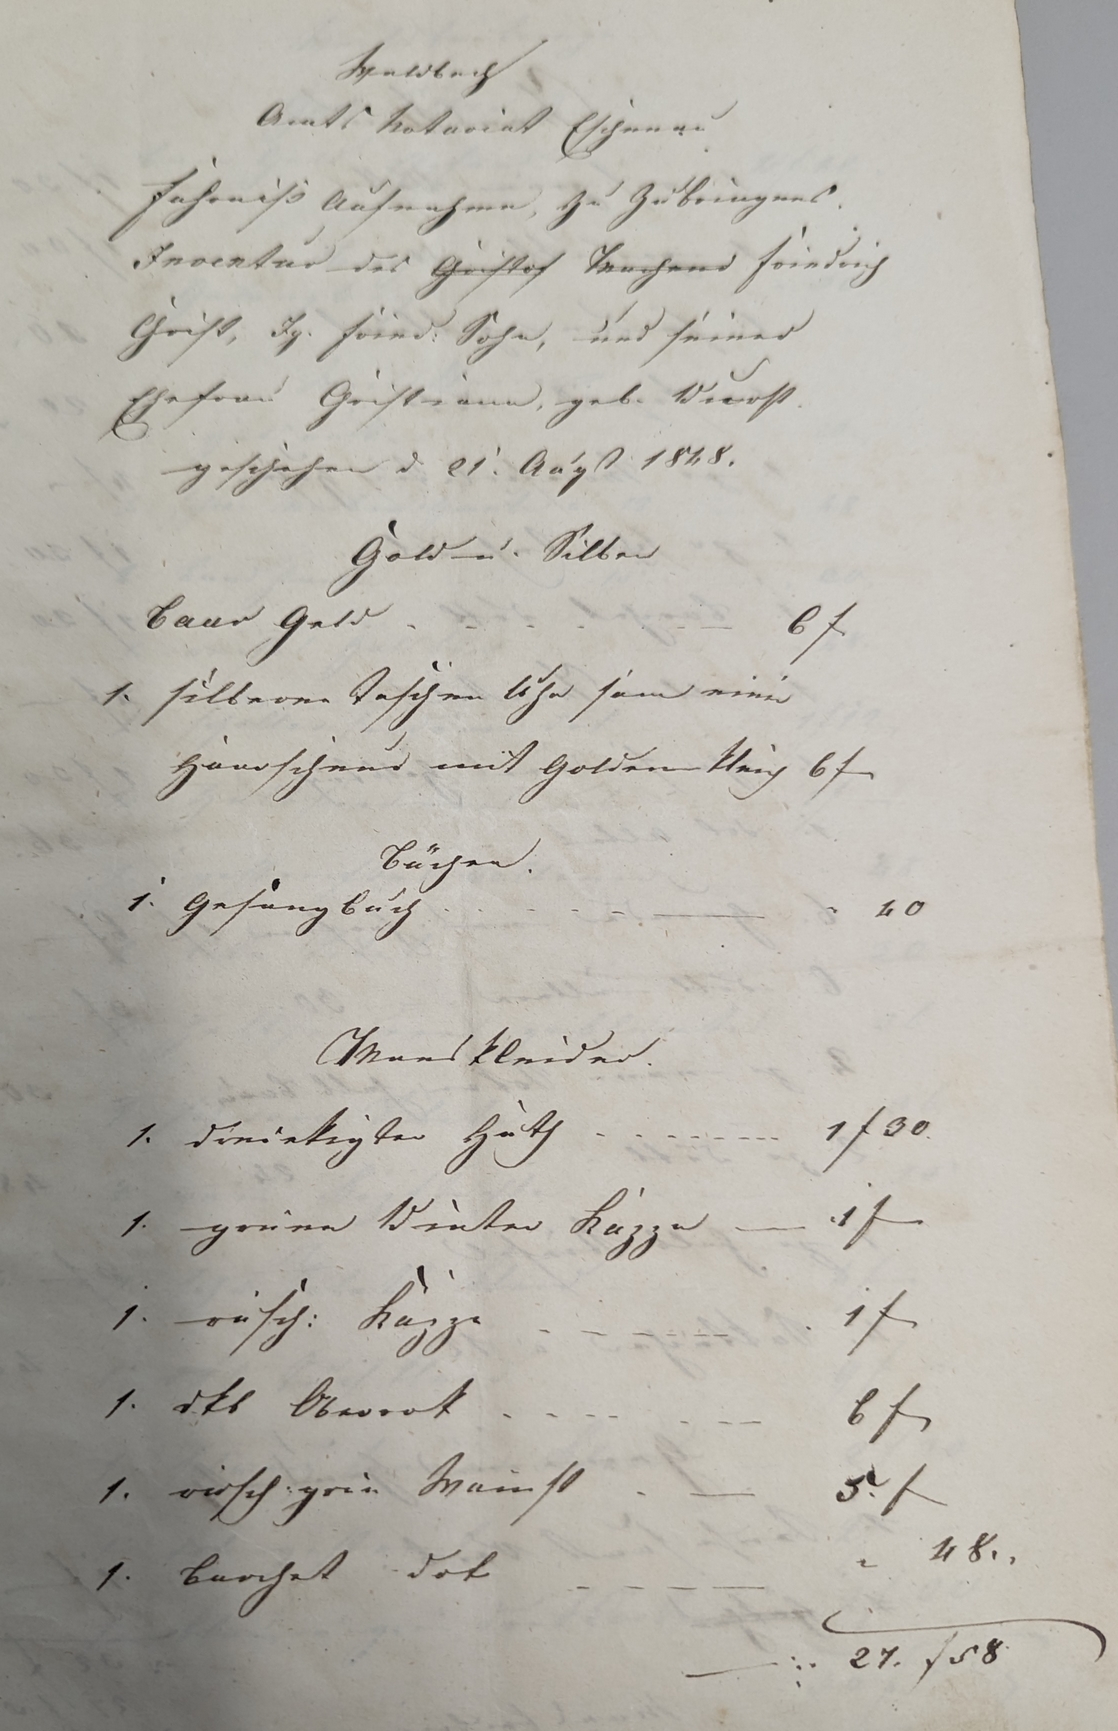 Waldbach
Amts Notariat Eschenau
Fahrniß Aufnahme, zu Zubringens.
Inventur des Christof Friedrich
Christ, Jg. Fried: Sohn, und seiner
Ehefrau Christiana, geb. Wurst.
geschehen d 21. Augst 1848.
Gold u. Silber
Baar Geld 6 f
1. silberne Taschen Uhr sam einer
Haarschnur mit Golden 6 f
Bücher.
1. Gesangbuch " 40
Manskleider.
1. dreiekigter Huth 1 f 30.
1. grüne Winter Kappe 1 f
1. Kappe 1 f
1. Oberrok 6 f
1. Wamst 5. f
1. Barchet dot " 48.
27. f 58